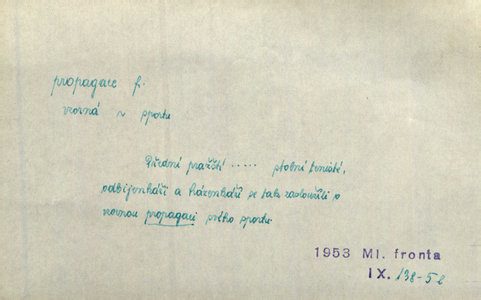 propagace f.
vzorná v sportu
Přední pražští ..... stolní tenisté,
odbíjenkáři a házenkáři se tak zasloužili o
vzornou propagaci svého sportu.
1953 Ml. fronta
IX. 138-5